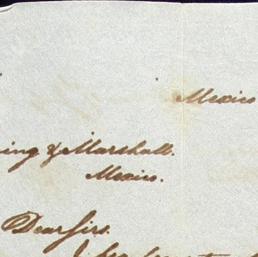 Mexico
ing & Marshall.
Mexico.
Dear Sirs.